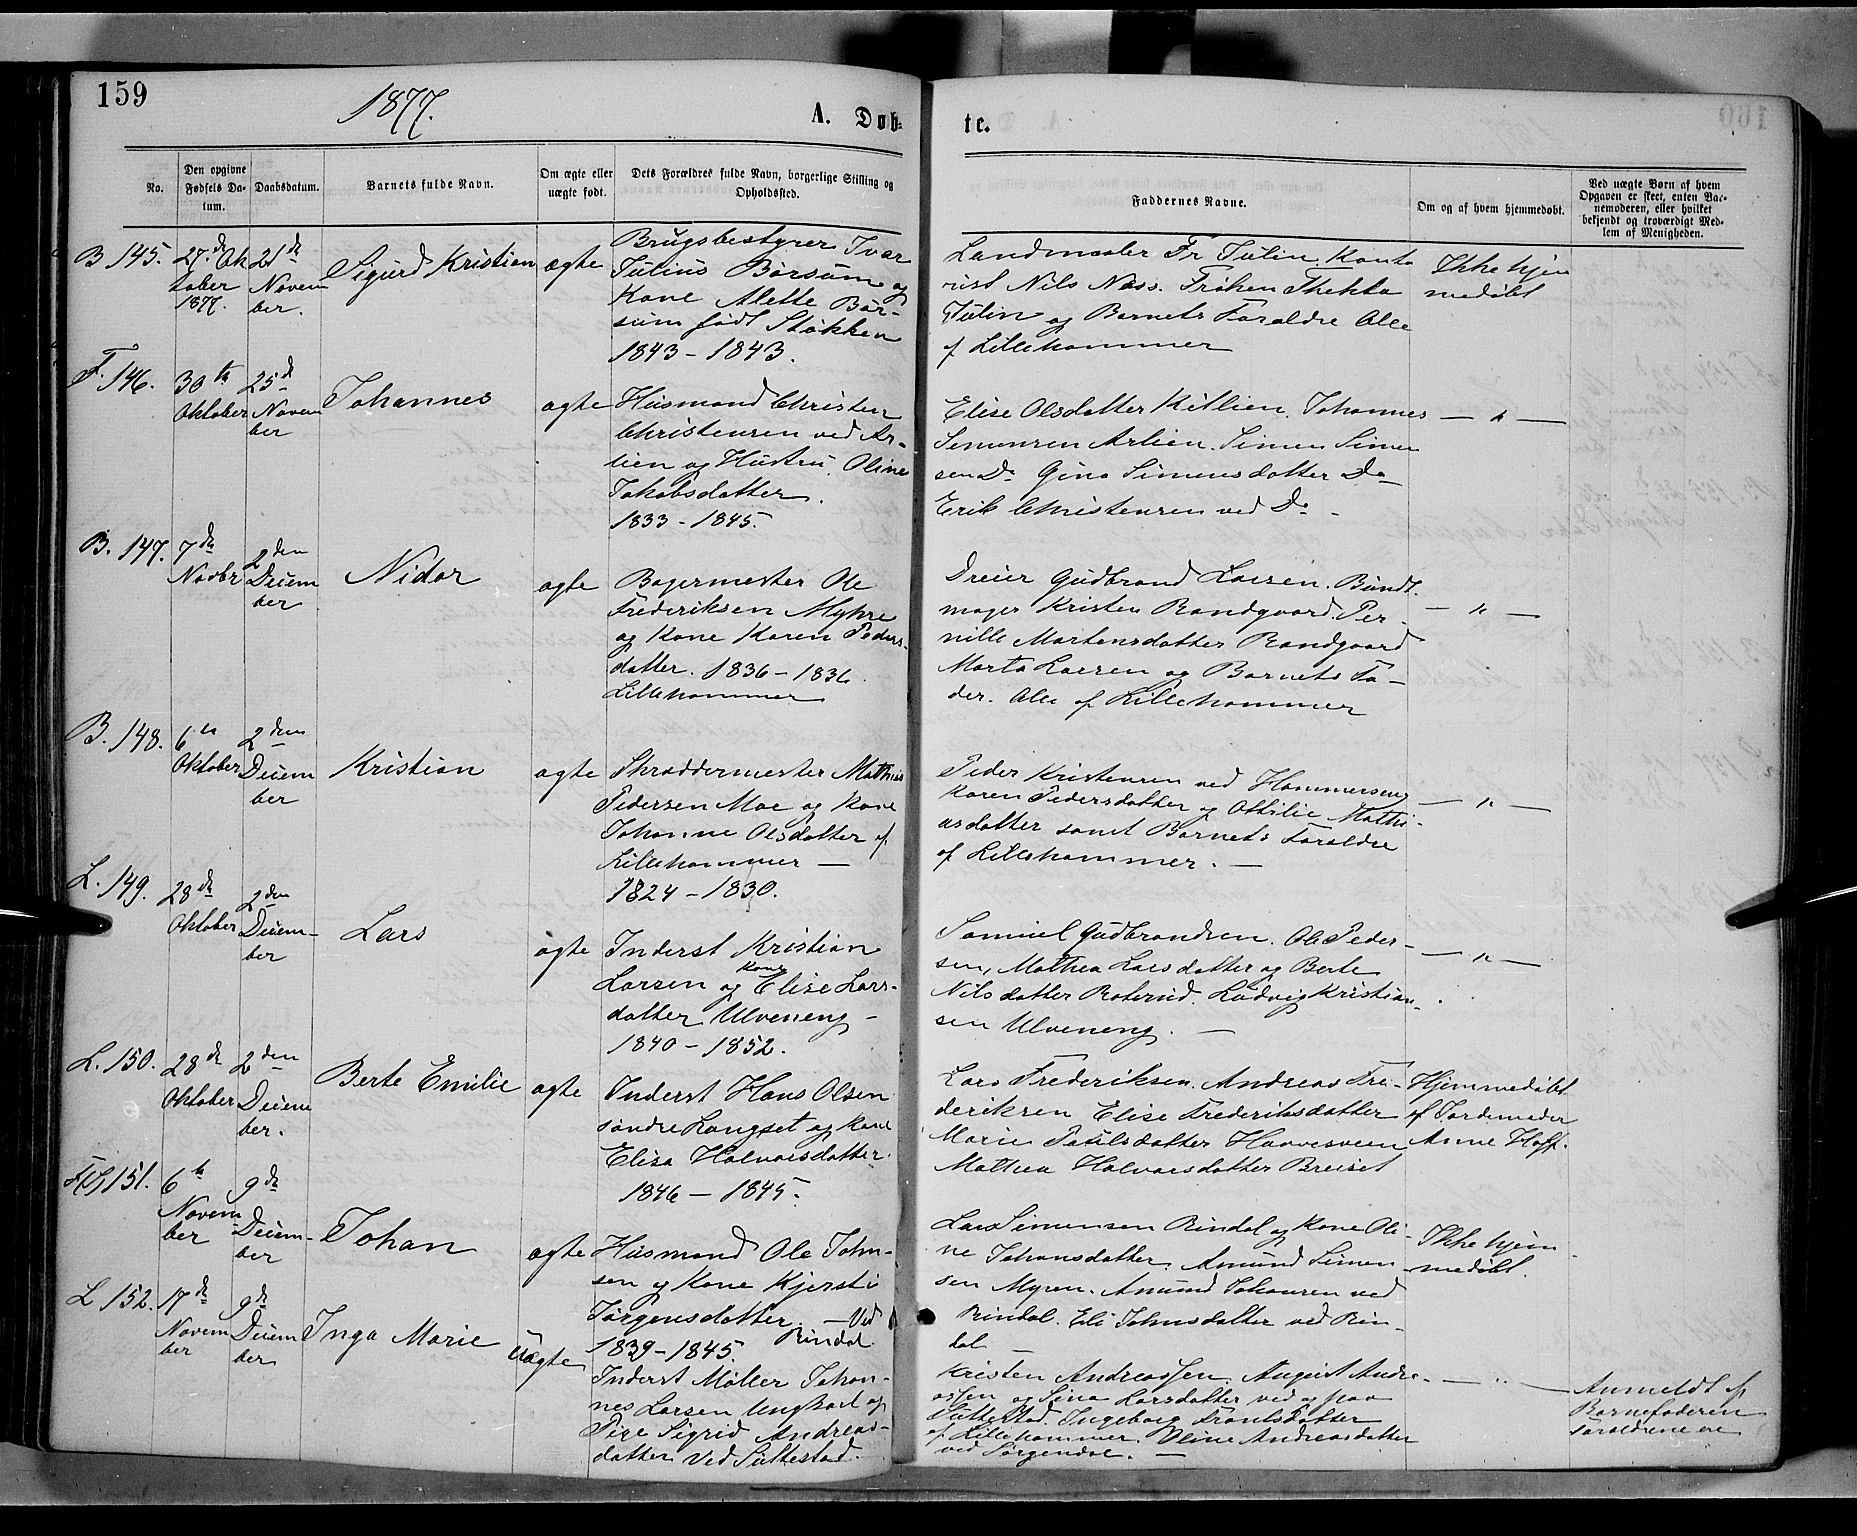 159
1877.
A. Døb-
te.
No.
Den opgivne Fødsels Da-
tum.
Daabsdatum.
Barnets fulde Navn.
Om ægte eller
uægte født.
Dets Forældres fulde Navn, borgerlige Stilling og
Opholdssted.
Faddernes Navne.
Om og af hvem hjemmedøbt.
Ved uægte Børn af hvem
Opgaven er skeet, enten Bar-
nemoderen, eller hvilket
bekjendt og troværdigt Med-
lem af Menigheden.
B 145.
27de Ok
tober
1877.
21de
Novem
ber.
Sigurd Kristian
ægte
Brugsbestyrer Ivar
Julius Børsum og
Kone Alette Bør-
sum født Støkken
1843 - 1843.
Landmaaler Fr Julin. Konto
rist Nils Næss. Frøken Thekla
Julin og Barnets Forældre Alle
af Lillehammer
Ikke hjem
medøbt
F. 146.
30te
Oktober
25de
Novem
ber
Johannes
ægte
Husmand Christen
Christensen ved Ar-
lien og Hustru Oline
Jakobsdatter.
1833 - 1845.
Elise Olsdatter Killien. Johannes
Simensen Arlien. Simen Simen
sen Do Gina Simensdatter Do
Erik Christensen ved Do -
— " —
B. 147.
7de
Novbr
2den
Decem
ber
Nidar
ægte
Bagermester Ole
Frederiksen Myhre
og Kone Karen Peders-
datter. 1836 - 1836
Lillehammer
Dreier Gudbrand Larsen. Bundt
mager Kristen Randgaard. Per-
nille Martensdatter Randgaard
Marta Larsen og Barnets Fa-
der. Alle af Lillehammer
— " —
B. 148.
6te
Oktober
2den
Decem
ber
Kristian
ægte
Skræddermester Mathias
Pedersen Moe og Kone
Johanne Olsdatter af
Lillehammer —
1824 - 1830.
Peder Kristensen ved Hammerseng
Karen Pedersdatter og Othilie Mathi-
asdatter samt Barnets Forældre
af Lillehammer. —
— " —
L. 149.
28de
Oktober
2den
Decem-
ber
Lars
ægte
Inderst Kristian
Larsen og Kone Elise Lars-
datter Ulveneng -
1840 - 1852.
Samuel Gudbrandsen. Ole Peder-
sen, Mathea Larsdatter og Berte
Nilsdatter Roterud. Ludvig Kristian-
sen Ulveneng. —
— " —
L. 150.
28de
Oktober
2den
Decem
ber.
Berte Emilie
ægte
Inderst Hans Olsen
søndre Langset og Kone
Elisa Halvorsdatter.
1846 - 1845.
Lars Frederiksen. Andreas Fre-
deriksen Elise Frederiksdatter
Marie Paulsdatter Haavesveen
Mathea Halvorsdatter Breiset
Hjemmedøbt
af Jordemoder
Anne Hoff.
151.
6te
Novem
ber
9de
Decem-
ber
Johan
ægte
Husmand Ole John-
sen og Kone Kjersti
Jørgensdatter. — Ved
1839 - 1845. Rindal
Lars Simensen Rindal og Kone Oli-
ne Johansdatter. Amund Simen
sen Myren. Amund Johansen ved
Rindal. Eli Johnsdatter ved Rin-
dal —
Ikke hjem
medøbt.
L 152.
17de
Novem
ber
9de
Decem
ber
Inga Marie
Uægte
Inderst Møller Johan-
nes Larsen Ungkarl og
Pige Sigrid Andreas-
datter ved Suttestad.
Kristen Andreassen. August Andre-
assen og Lina Larsdatter ved og paa
Suttestad. Ingeborg Frantsdatter
af Lillehammer. Oline Andreasdatter
ved Jørgendal. —
— " —
Anmeldt af
Barnefaderen
Forældrene ere